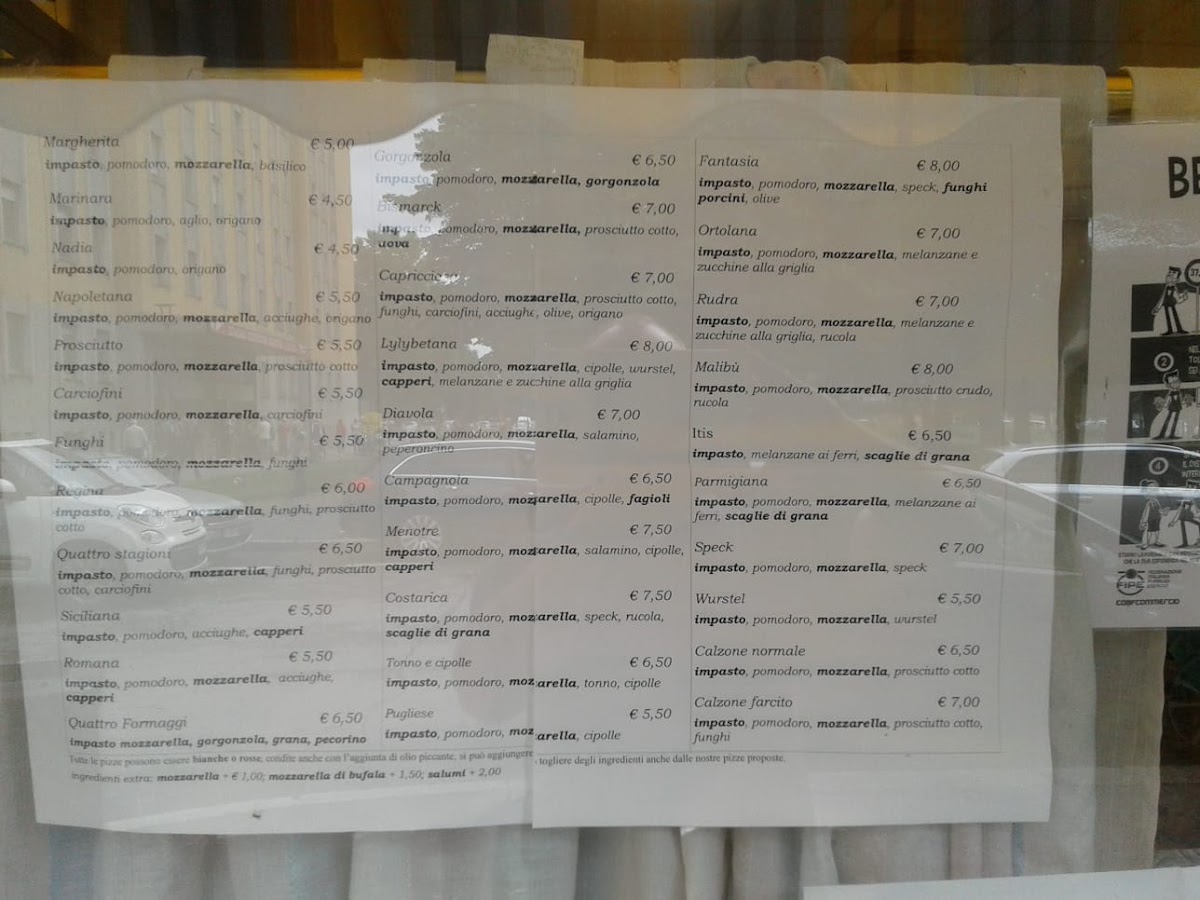 Margherita € 5,00
impasto, pomodoro, mozzarella, basilico
Marinara € 4,50
impasto, pomodoro, aglio, origano
Nadia € 4,50
impasto, pomodoro, origano
Napoletana € 5,50
impasto, pomodoro, mozzarella, acciughe, origano
Prosciutto € 5,50
impasto, pomodoro, mozzarella, prosciutto cotto
Carciofini € 5,50
impasto, pomodoro, mozzarella, carciofini
Funghi € 5,50
impasto, pomodoro, mozzarella, funghi
Regina € 6,00
impasto, pomodoro, mozzarella, funghi, prosciutto
cotto
Quattro stagioni € 6,50
impasto, pomodoro, mozzarella, funghi, prosciutto
cotto, carciofini
Siciliana € 5,50
impasto, pomodoro, acciughe, capperi
Romana € 5,50
impasto, pomodoro, mozzarella, acciughe,
capperi
Quattro Formaggi € 6,50
impasto mozzarella, gorgonzola, grana, pecorino
Gorgonzola € 6,50
impasto, pomodoro, mozzarella, gorgonzola
Bismarck € 7,00
impasto, pomodoro, mozzarella, prosciutto cotto,
uova
Capricciosa € 7,00
impasto, pomodoro, mozzarella, prosciutto cotto,
funghi, carciofini, acciughe, olive, origano
Lylybetana € 8,00
impasto, pomodoro, mozzarella, cipolle, wurstel,
capperi, melanzane e zucchine alla griglia
Diavola € 7,00
impasto, pomodoro, mozzarella, salamino,
peperoncino
Campagnola € 6,50
impasto, pomodoro, mozzarella, cipolle, fagioli
Menotre € 7,50
impasto, pomodoro, mozzarella, salamino, cipolle,
capperi
Costarica € 7,50
impasto, pomodoro, mozzarella, speck, rucola,
scaglie di grana
Tonno e cipolle € 6,50
impasto, pomodoro, mozzarella, tonno, cipolle
Pugliese € 5,50
impasto, pomodoro, mozzarella, cipolle
Fantasia € 8,00
impasto, pomodoro, mozzarella, speck, funghi
porcini, olive
Ortolana € 7,00
impasto, pomodoro, mozzarella, melanzane e
zucchine alla griglia
Rudra € 7,00
impasto, pomodoro, mozzarella, melanzane e
zucchine alla griglia, rucola
Malibù € 8,00
impasto, pomodoro, mozzarella, prosciutto crudo,
rucola
Itis € 6,50
impasto, melanzane ai ferri, scaglie di grana
Parmigiana € 6,50
impasto, pomodoro, mozzarella, melanzane ai
ferri, scaglie di grana
Speck € 7,00
impasto, pomodoro, mozzarella, speck
Wurstel € 5,50
impasto, pomodoro, mozzarella, wurstel
Calzone normale € 6,50
impasto, pomodoro, mozzarella, prosciutto cotto
Calzone farcito € 7,00
impasto, pomodoro, mozzarella, prosciutto cotto,
funghi
Tutte le pizze possono essere bianche o rosse, condite anche con l'aggiunta di olio piccante, si può aggiungere togliere degli ingredienti anche dalle nostre pizze proposte.
Ingredienti extra: mozzarella + € 1,00; mozzarella di bufala + 1,50; salumi + 2,00
BE
2
4
FIPE
FEDERAZIONE
ITALIANA
CONFCOMMERCIO